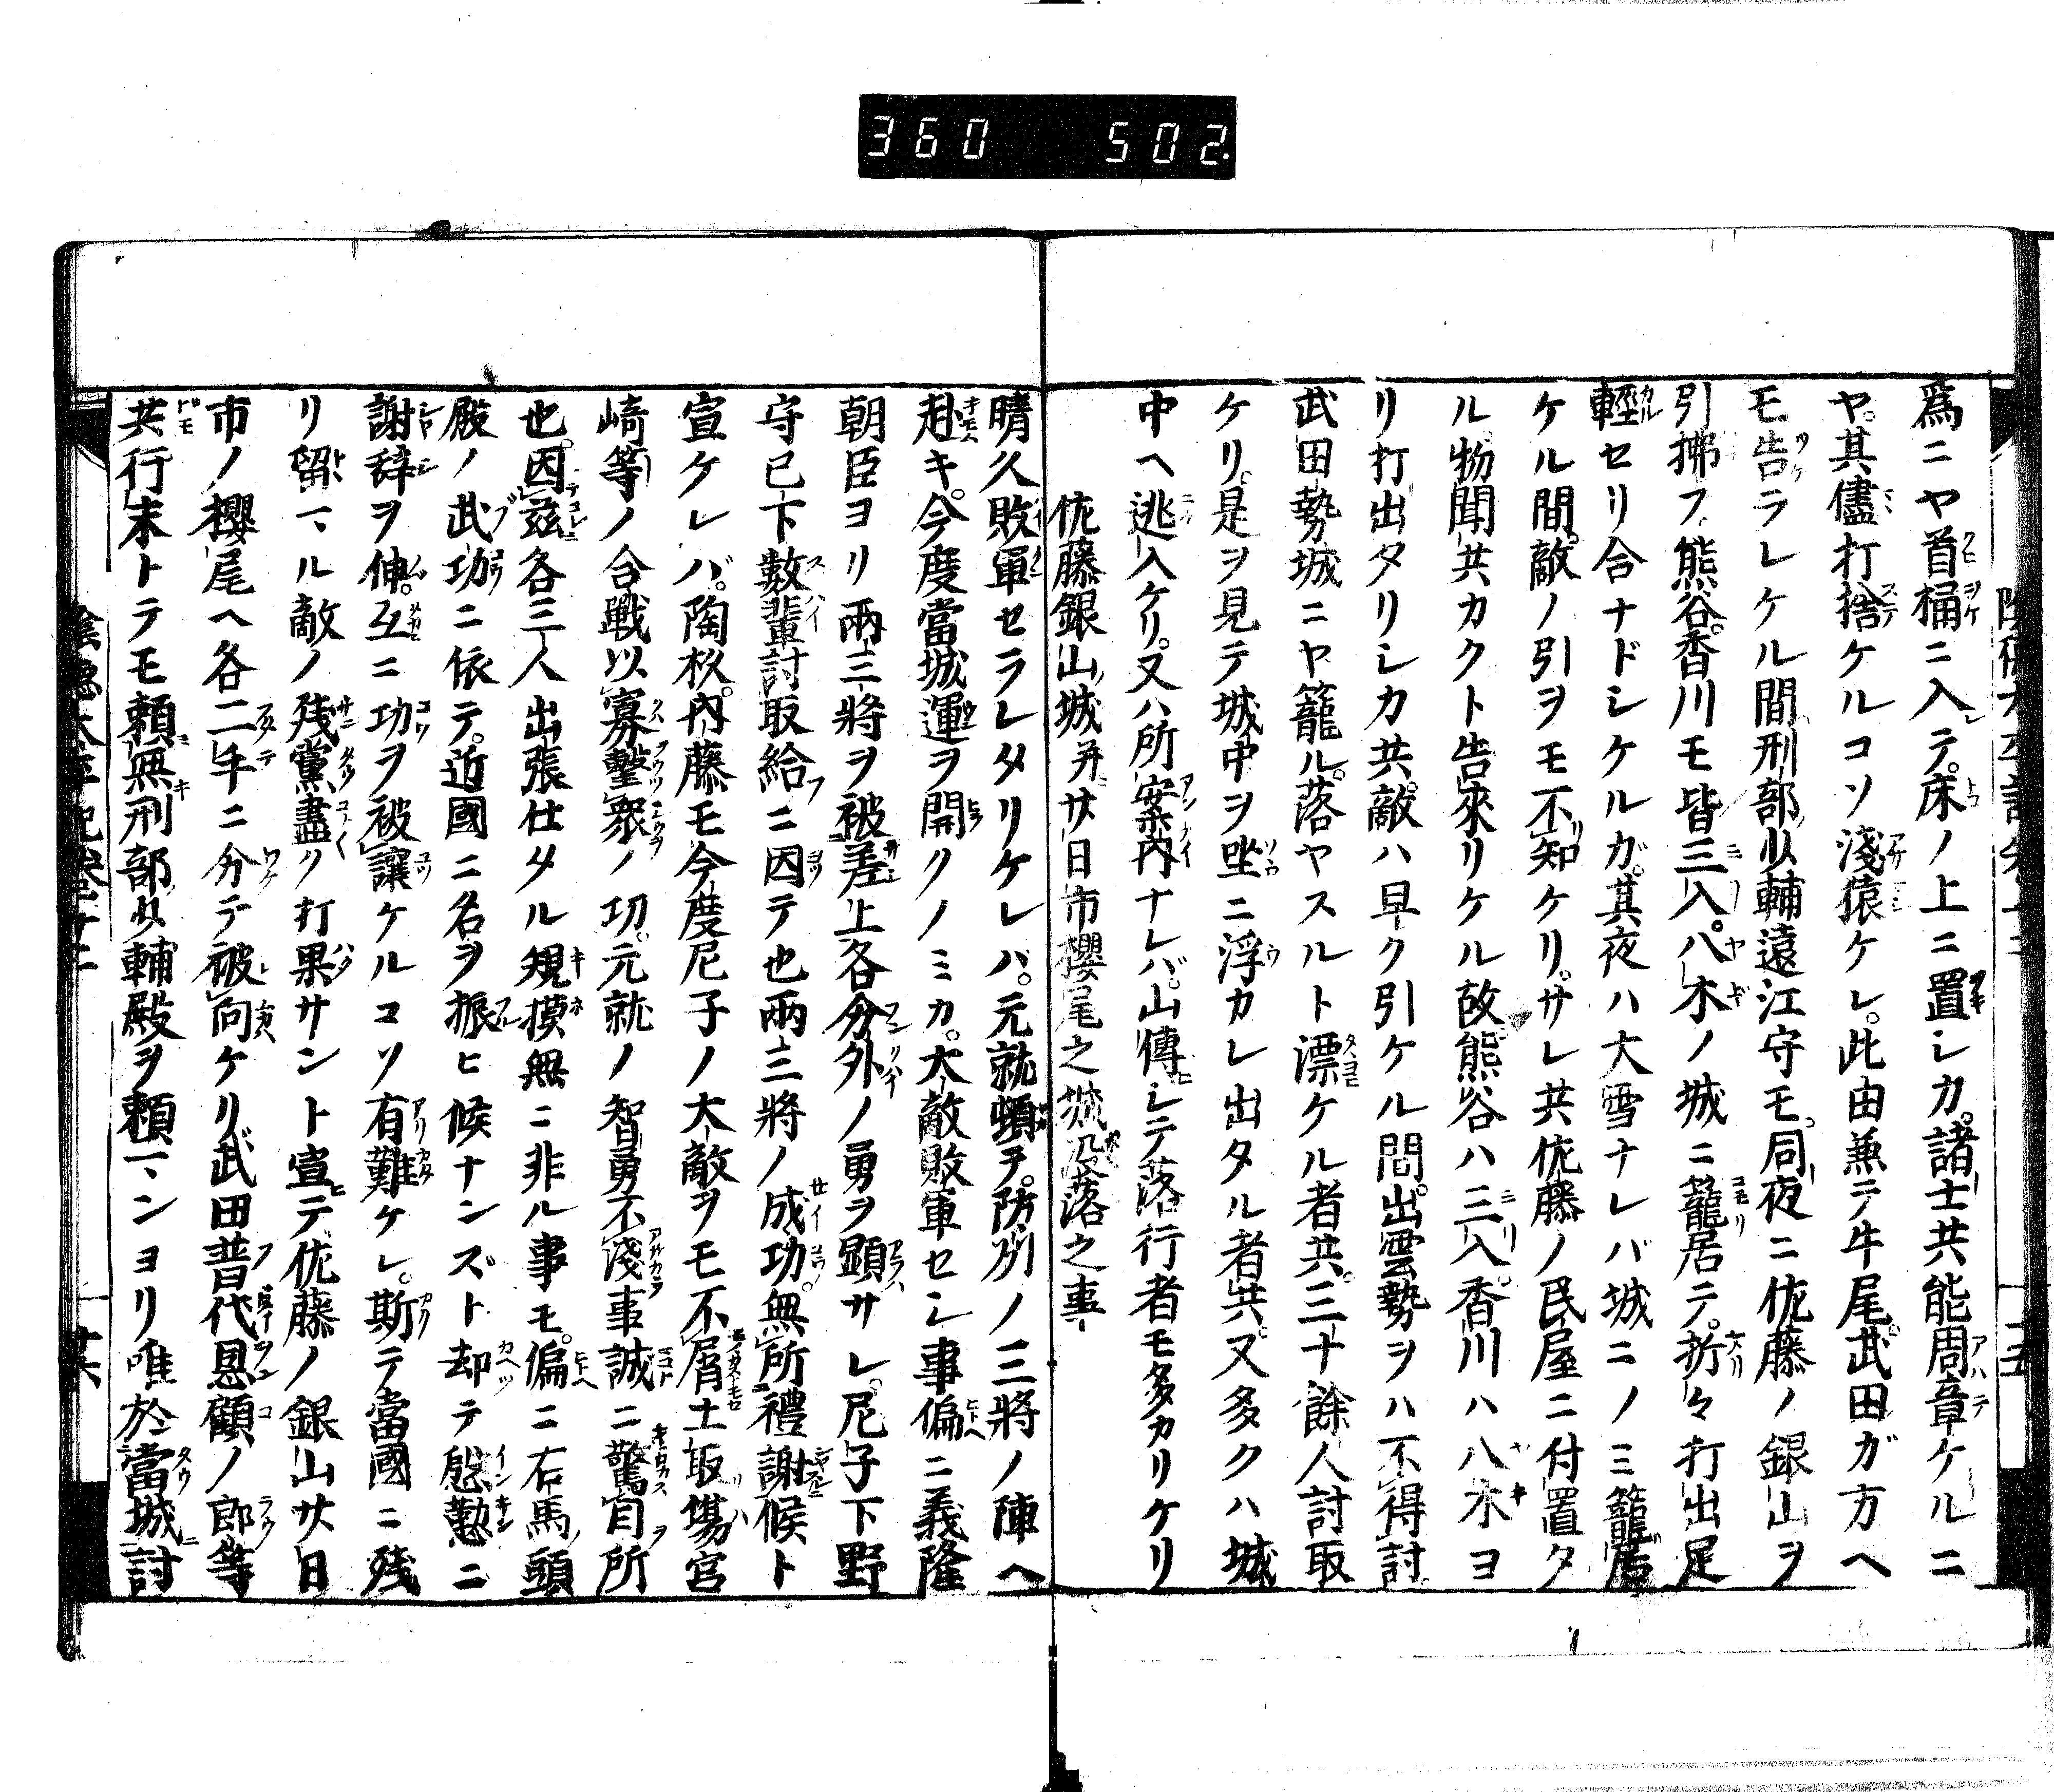 360 502.
爲ニヤ首桶ニ入テ。床ノ上ニ置シカ。諸士共能周章ケルニ
ヤ。其儘打捨ケルコソ淺猿ケレ。此由兼テ牛尾。武田ガ方ヘ
モ告ラレケル間刑部少輔遠江守モ。同夜ニ佐藤ノ銀山ヲ
引拂フ。熊谷。香川モ皆三入。八木ノ城ニ籠居テ。折々打出足
輕セリ合ナドシケルガ。其夜ハ大雪ナレバ城ニノミ籠居
ケル間。敵ノ引ヲモ不知ケリ。サレ共佐藤ノ民屋ニ付置タ
ル物聞共カクト告來リケル故熊谷ハ三入。香川ハ八木ヨ
リ打出タリシカ共。敵ハ早ク引ケル間。出雲勢ヲハ不得討
武田勢城ニヤ籠ル。落ヤスルト漂ケル者共。三十餘人討取
ケリ。是ヲ見テ城中ヲ坐ニ浮カレ出タル者共。又多クハ城
中ヘ逃入ケリ。又ハ所案内ナレバ。山傳シテ落行者モ多カリケリ
佐藤銀山城并サ日市櫻尾之城沒落之事
晴久敗軍セラレタリケレバ。元就頓テ。防州ノ三將ノ陣ヘ
赴キ。今度當城運ヲ開クノミカ。大敵敗軍セシ事偏ニ義隆
朝臣ヨリ兩三將ヲ被差上各分外ノ勇ヲ顕サレ。尼子下野
守已下數輩討取給ニ因テ也兩三將ノ成功。無所禮謝候ト
宣ケレバ。陶杦。内藤モ今度尼子ノ大敵ヲモ不屑土取塲宮
崎等ノ合戰以寡擊衆ノ功。元就ノ智勇不淺事誠ニ驚目所
也。因茲各三人出張仕タル規摸無ニ非ル事モ。偏ニ右馬頭
殿ノ武功ニ依テ。近國ニ名ヲ振ヒ候ナンズト却テ慇懃ニ
謝辞ヲ伸。互ニ功ヲ被讓ケルコソ有難ケレ。斯テ當國ニ残
リ留マル敵ノ残黨盡ク打果サントテ宣テ佐藤ノ銀山サ日
市ノ櫻尾ヘ各二手ニ分テ被向ケリ武田普代恩顧ノ郎等
共行末トテモ頼無刑部少輔殿ヲ頼マンヨリ唯於當城討